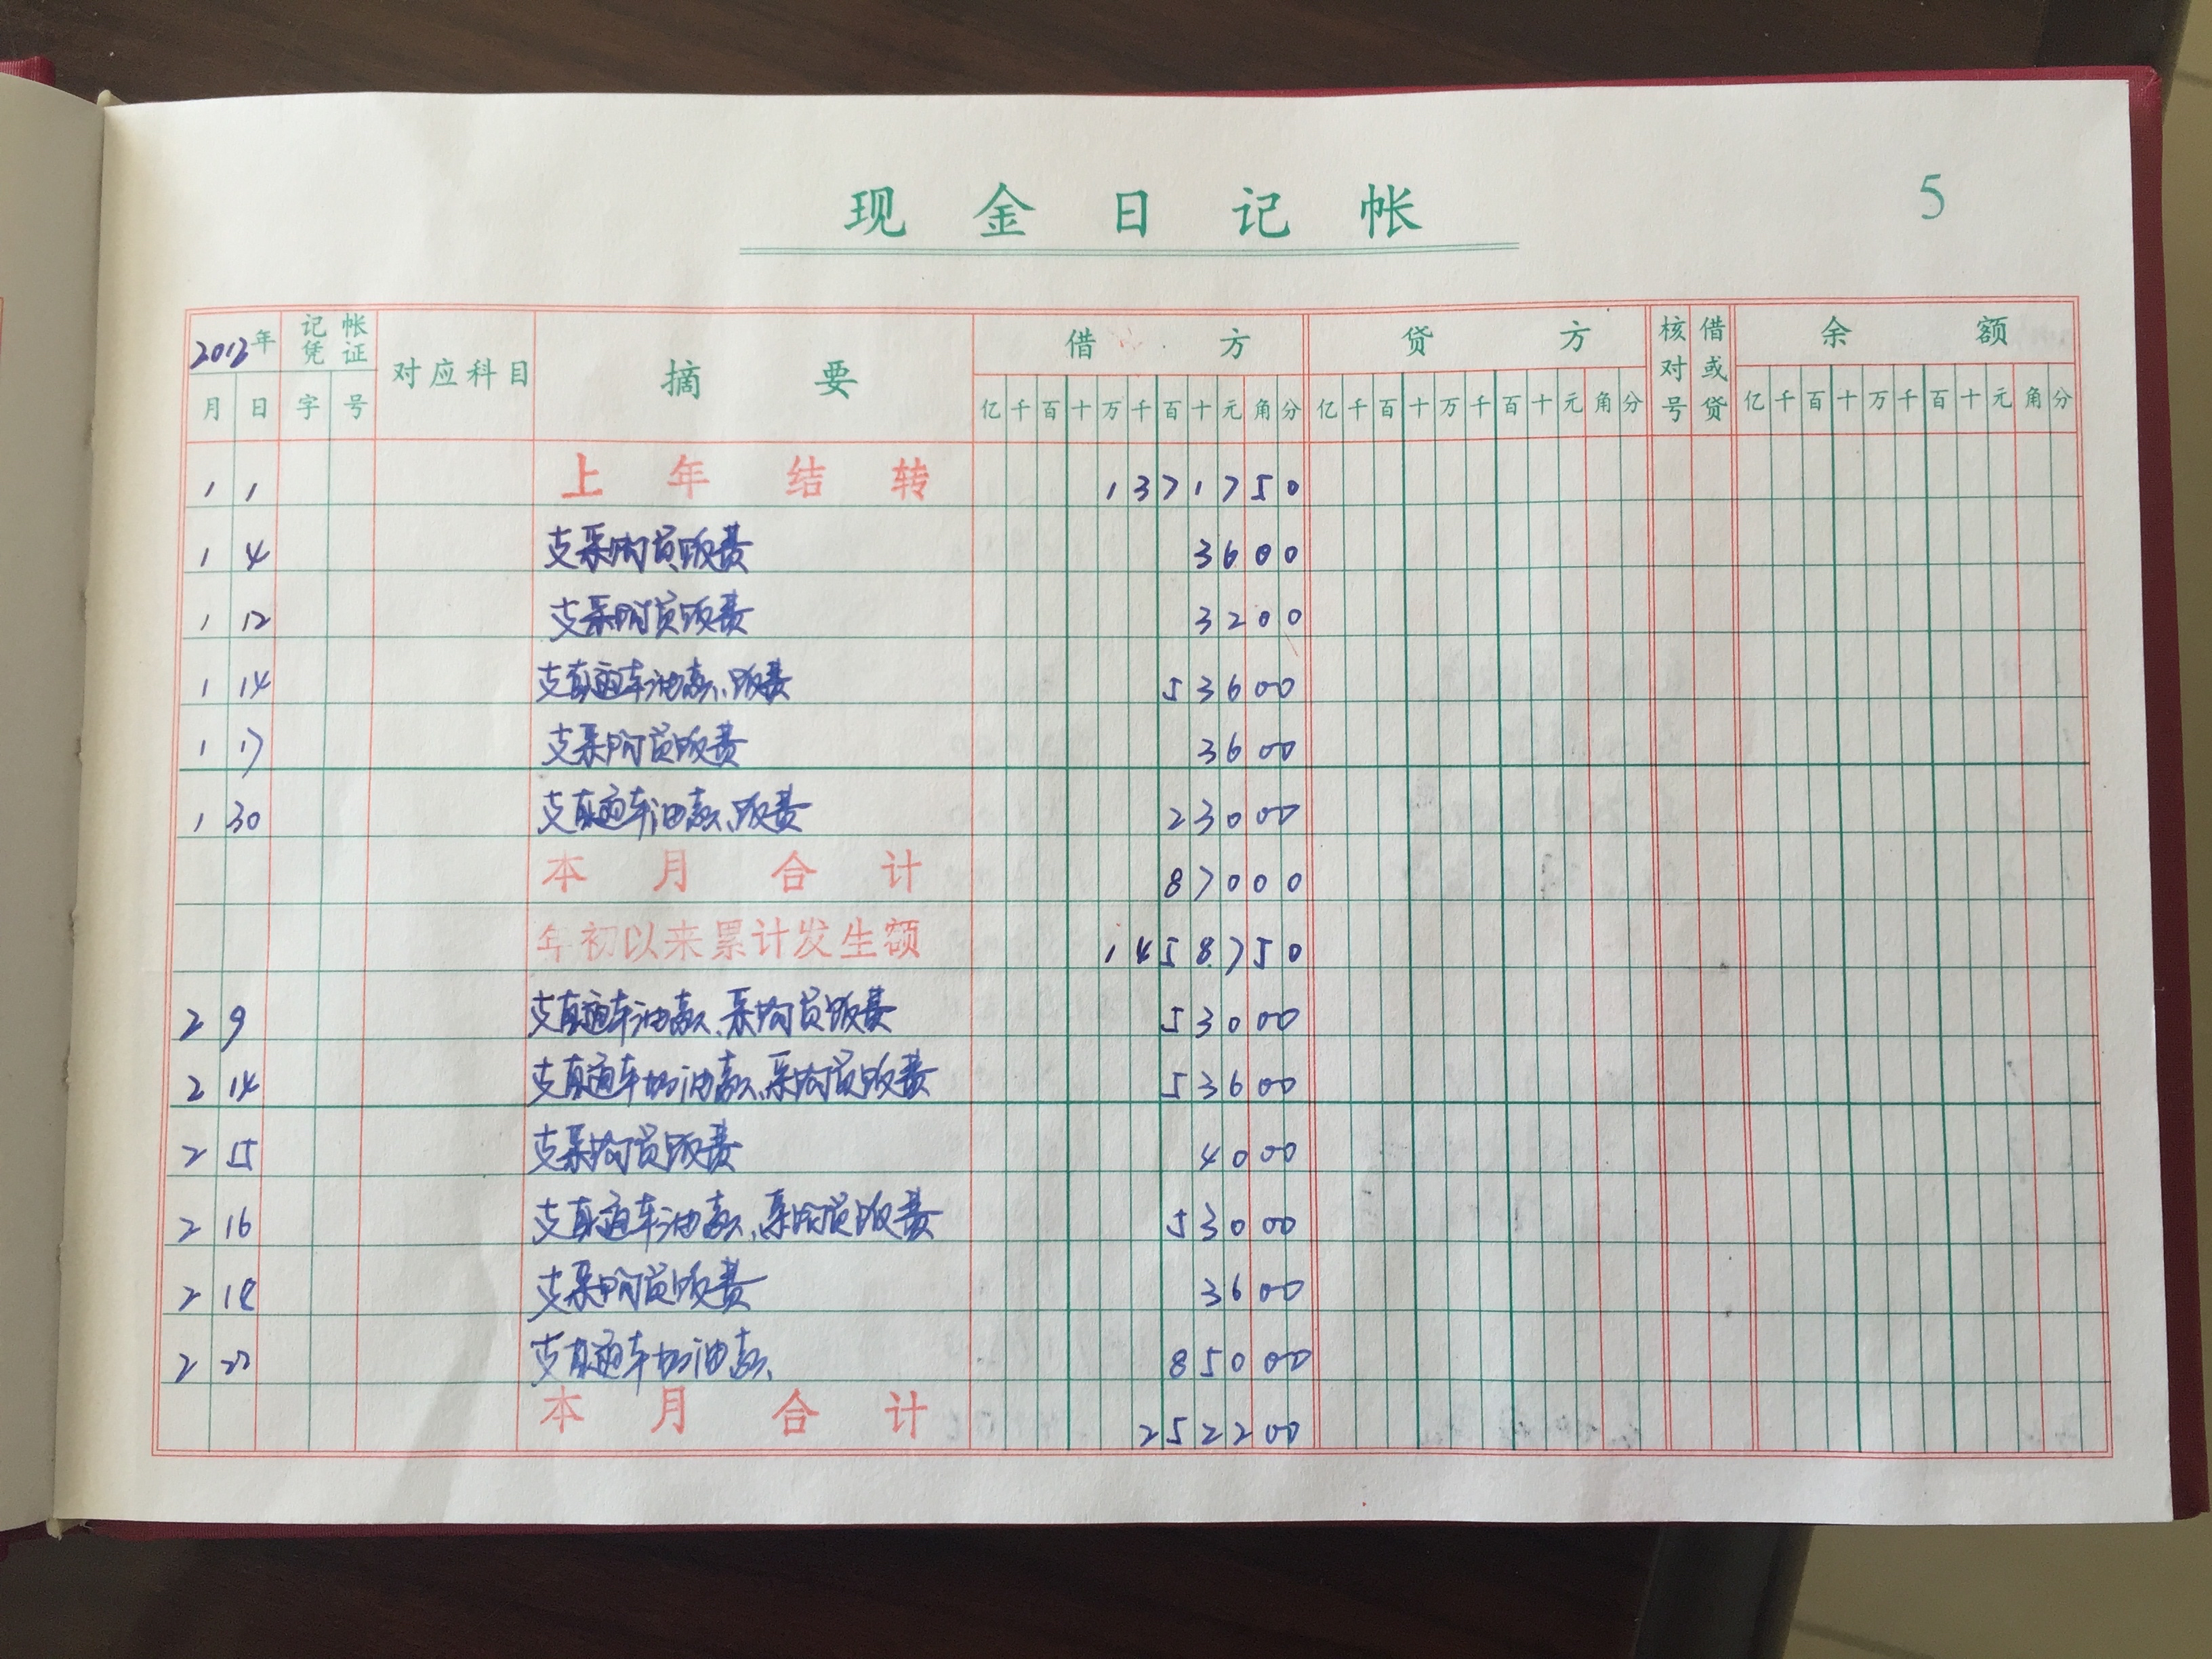 现金日记帐
5
2012年 记帐凭证 对应科目 摘要 借方 贷方 核对号 借或贷 余额
月 日 字 号 亿千百十万千百十元角分 亿千百十万千百十元角分 亿千百十万千百十元角分
1 1 上年结转 1371750
1 4 支采购员饭费 3600
1 12 支采购员饭费 3200
1 14 支直通车油款、饭费 53600
1 17 支采购员饭费 3600
1 30 支直通车油款、饭费 23000
本月合计 87000
年初以来累计发生额 1458750
2 9 支直通车油款、采购员饭费 53000
2 14 支直通车加油款、采购员饭费 53600
2 15 支采购员饭费 4000
2 16 支直通车油款、采购员饭费 53000
2 18 支采购员饭费 3600
2 支直通车加油款、 85000
本月合计 252200